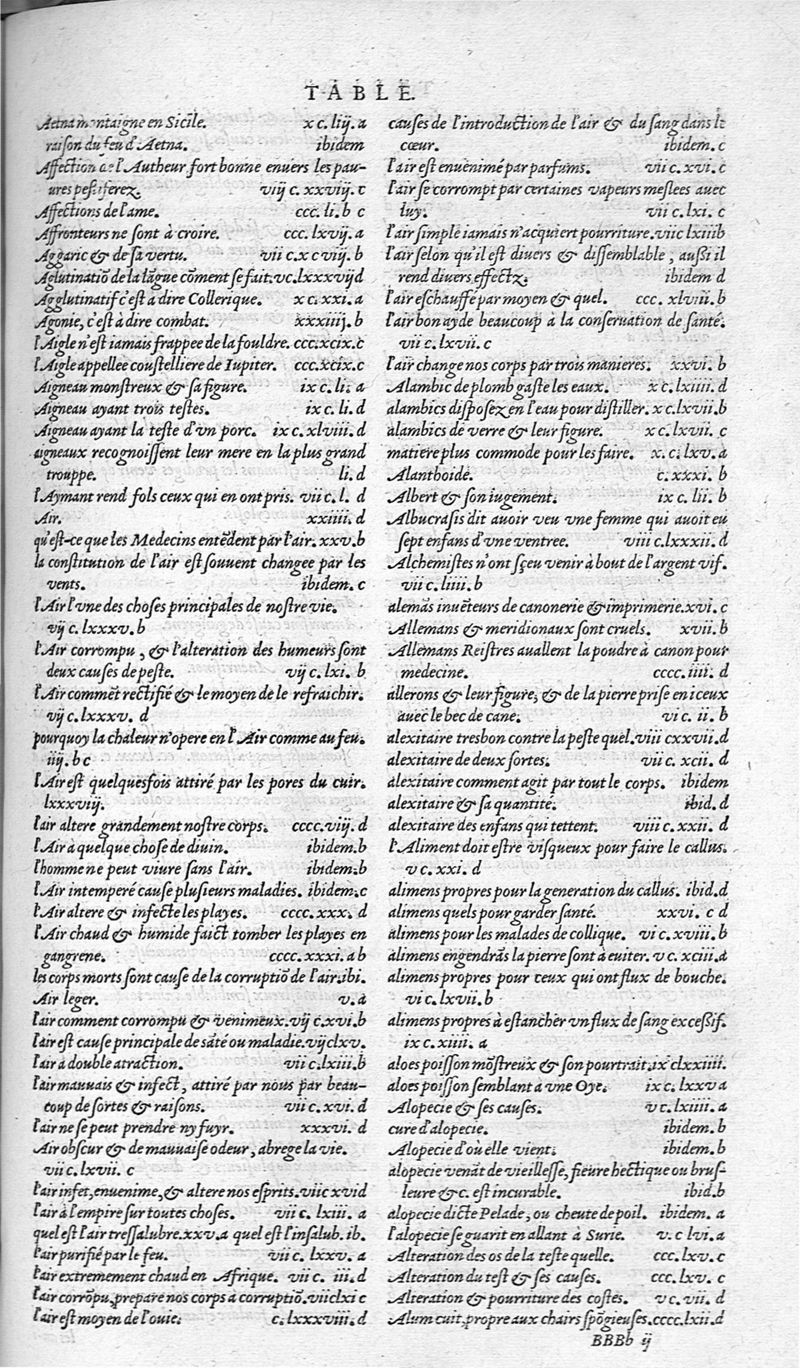 TABLE.
Aetna montaigne en Sicile. x c. liij. a
raison du feu d'Aetna. ibidem
Affection de l'Autheur fort bonne enuers les pau-
ures pestiferez. viij c. xxviij. c
Affections de l'ame. ccc. li. b c
Affronteurs ne sont à croire. ccc. lxvij. a
Aggaric & de sa vertu. vii c. x c viij. b
Aglutinatiō de la lāgue cōment se fait. v c. lxxxvij d
Agglutinatif c'est a dire Collerique. x c. xxi. a
Agonie, c'est à dire combat. xxxiiij. b
l'Aigle n'est iamais frappee de la fouldre. ccc. xcix. c
l'Aigle appellee coustelliere de Iupiter. ccc. xcix. c
Aigneau monstreux & sa figure. ix c. li. a
Aigneau ayant trois testes. ix c. li. d
Aigneau ayant la teste d'vn porc. ix c. xlviii. d
aigneaux recognoissent leur mere en la plus grand
trouppe. li. d
l'Aymant rend fols ceux qui en ont pris. vii c. l. d
Air. xxiiii. d
qu'est-ce que les Medecins entēdent par l'air. xxv. b
la constitution de l'air est souuent changee par les
vents. ibidem. c
l'Air l'vne des choses principales de nostre vie.
vij c. lxxxv. b
l'Air corrompu, & l'alteration des humeurs sont
deux causes de peste. vij c. lxi. b
l'Air commēt rectifié & le moyen de le refraichir.
vij c. lxxxv. d
pourquoy la chaleur n'opere en l'Air comme au feu.
iiij. b c
l'Air est quelquesfois attiré par les pores du cuir.
lxxxvij.
l'air altere grandement nostre corps. cccc. viij. d
l'Air à quelque chose de diuin. ibidem. b
l'homme ne peut viure sans l'air. ibidem. b
l'Air intemperé cause plusieurs maladies. ibidem. c
l'Air altere & infecte les playes. cccc. xxx. d
l'Air chaud & humide faict tomber les playes en
gangrene. cccc. xxxi. a b
les corps morts sont cause de la corruptiō de l'air. ibi.
Air leger. v. a
l'air comment corrompu & venimeux. vij c. xvi. b
l'air est cause principale de sāté ou maladie. vij c lxv.
l'air a double atraction. vii c. lxiii. b
l'air mauuais & infect, attiré par nous par beau-
coup de sortes & raisons. vii c. xvi. d
l'air ne se peut prendre ny fuyr. xxxvi. d
Air obscur & de mauuaise odeur, abrege la vie.
vii c. lxvii. c
l'air infet, enuenime, & altere nos esprits. vii c xvi d
l'air à l'empire sur toutes choses. vii c. lxiii. a
quel est l'air tressalubre. xxv. a quel est l'insalub. ib.
l'air purifié par le feu. vii c. lxxv. a
l'air extremement chaud en Afrique. vii c. iii. d
l'air corrōpu, prepare nos corps a corruptiō. vii c lxi c
l'air est moyen de l'ouie. c. lxxxviii. d
causes de l'introduction de l'air & du sang dans le
cœur. ibidem. c
l'air est enuenimé par parfums. vii c. xvi. c
l'air se corrompt par certaines vapeurs meslees auec
luy. vii c. lxi. c
l'air simple iamais n'acquiert pourriture. vii c lxiii b
l'air selon qu'il est diuers & dissemblable, aussi il
rend diuers effectz. ibidem d
l'air eschauffé par moyen & quel. ccc. xlviii. b
l'air bon ayde beaucoup à la conseruation de santé.
vii c. lxvii. c
l'air change nos corps par trois manieres. xxvi. b
Alambic de plomb gaste les eaux. x c. lxiiii. d
alambics disposez en l'eau pour distiller. x c. lxvii. b
alambics de verre & leur figure. x c. lxvii. c
matiere plus commode pour les faire. x. c. lxv. a
Alanthoide. c. xxxi. b
Albert & son iugement. ix c. lii. b
Albucrasis dit auoir veu vne femme qui auoit eu
sept enfans d'vne ventree. viii c. lxxxii. d
Alchemistes n'ont sçeu venir à bout de l'argent vif.
vii c. liiii. b
alemās inuēteurs de canonerie & imprimerie. xvi. c
Allemans & meridionaux sont cruels. xvii. b
Allemans Reistres auallent la poudre à canon pour
medecine. cccc. iiii. d
allerons & leur figure, & de la pierre prise en iceux
auec le bec de cane. vi c. ii. b
alexitaire tresbon contre la peste quel. viii c xxvii. d
alexitaire de deux sortes. vii c. xcii. d
alexitaire comment agit par tout le corps. ibidem
alexitaire & sa quantité. ibid. d
alexitaire des enfans qui tettent. viii c. xxii. d
l'Aliment doit estre visqueux pour faire le callus.
v c. xxi. d
alimens propres pour la generation du callus. ibid. d
alimens quels pour garder santé. xxvi. c d
alimens pour les malades de collique. vi c. xviii. b
alimens engendrās la pierre sont à euiter. v c. xciii. a
alimens propres pour ceux qui ont flux de bouche.
vi c. lxvii. b
alimens propres à estancher vn flux de sang excessif.
ix c. xiiii. a
aloes poisson mōstreux & son pourtrait. ix c lxxiiii.
aloes poisson semblant à vne Oye. ix c. lxxv a
Alopecie & ses causes. v c. lxiiii. a
cure d'alopecie. ibidem. b
Alopecie d'où elle vient. ibidem. b
alopecie venāt de vieillesse, fieure hectique ou brus-
leure &c. est incurable. ibid. b
alopecie dicte Pelade, ou cheute de poil. ibidem. a
l'alopecie se guarit en allant à Surie. v. c lvi. a
Alteration des os de la teste quelle. ccc. lxv. c
Alteration du test & ses causes. ccc. lxv. c
Alteration & pourriture des costes. v c. vii. d
Alum cuit, propre aux chairs spōgieuses. cccc. lxii. d
BBBb ij